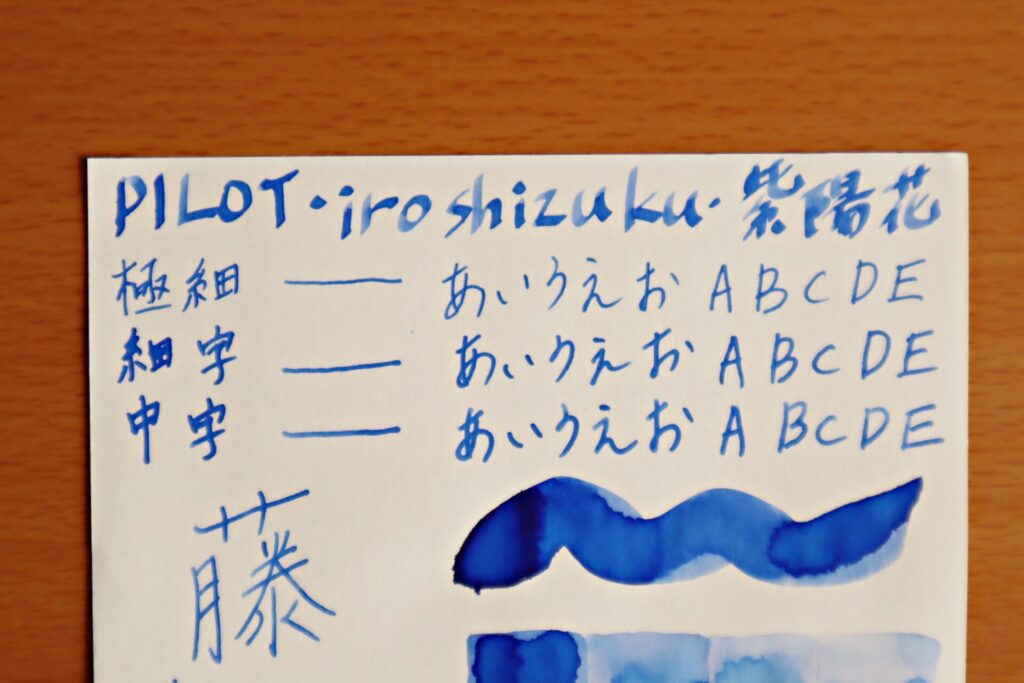 PILOT・iroshizuku・紫陽花
極細 — あいうえお ABCDE
細字 — あいうえお ABCDE
中字 — あいうえお ABCDE
藤